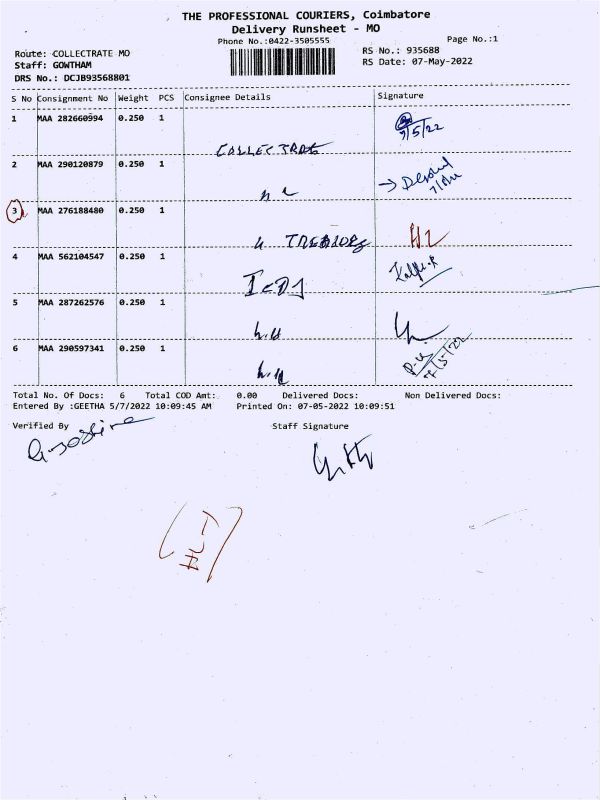 THE PROFESSIONAL COURIERS, Coimbatore
Delivery Runsheet - MO
Phone No.:0422-3505555
Page No.:1
Route: COLLECTRATE MO
RS No.: 935688
Staff: GOWTHAM
RS Date: 07-May-2022
DRS No.: DCJB93568801
S No Consignment No Weight PCS Consignee Details Signature
1 MAA 282660994 0.250 1
7/5/22
COLLECTRATE
2 MAA 290120879 0.250 1
3 MAA 276188480 0.250 1
4 MAA 562104547 0.250 1
5 MAA 287262576 0.250 1
6 MAA 290597341 0.250 1
Total No. Of Docs: 6 Total COD Amt: 0.00 Delivered Docs: Non Delivered Docs:
Entered By :GEETHA 5/7/2022 10:09:45 AM Printed On: 07-05-2022 10:09:51
Verified By Staff Signature